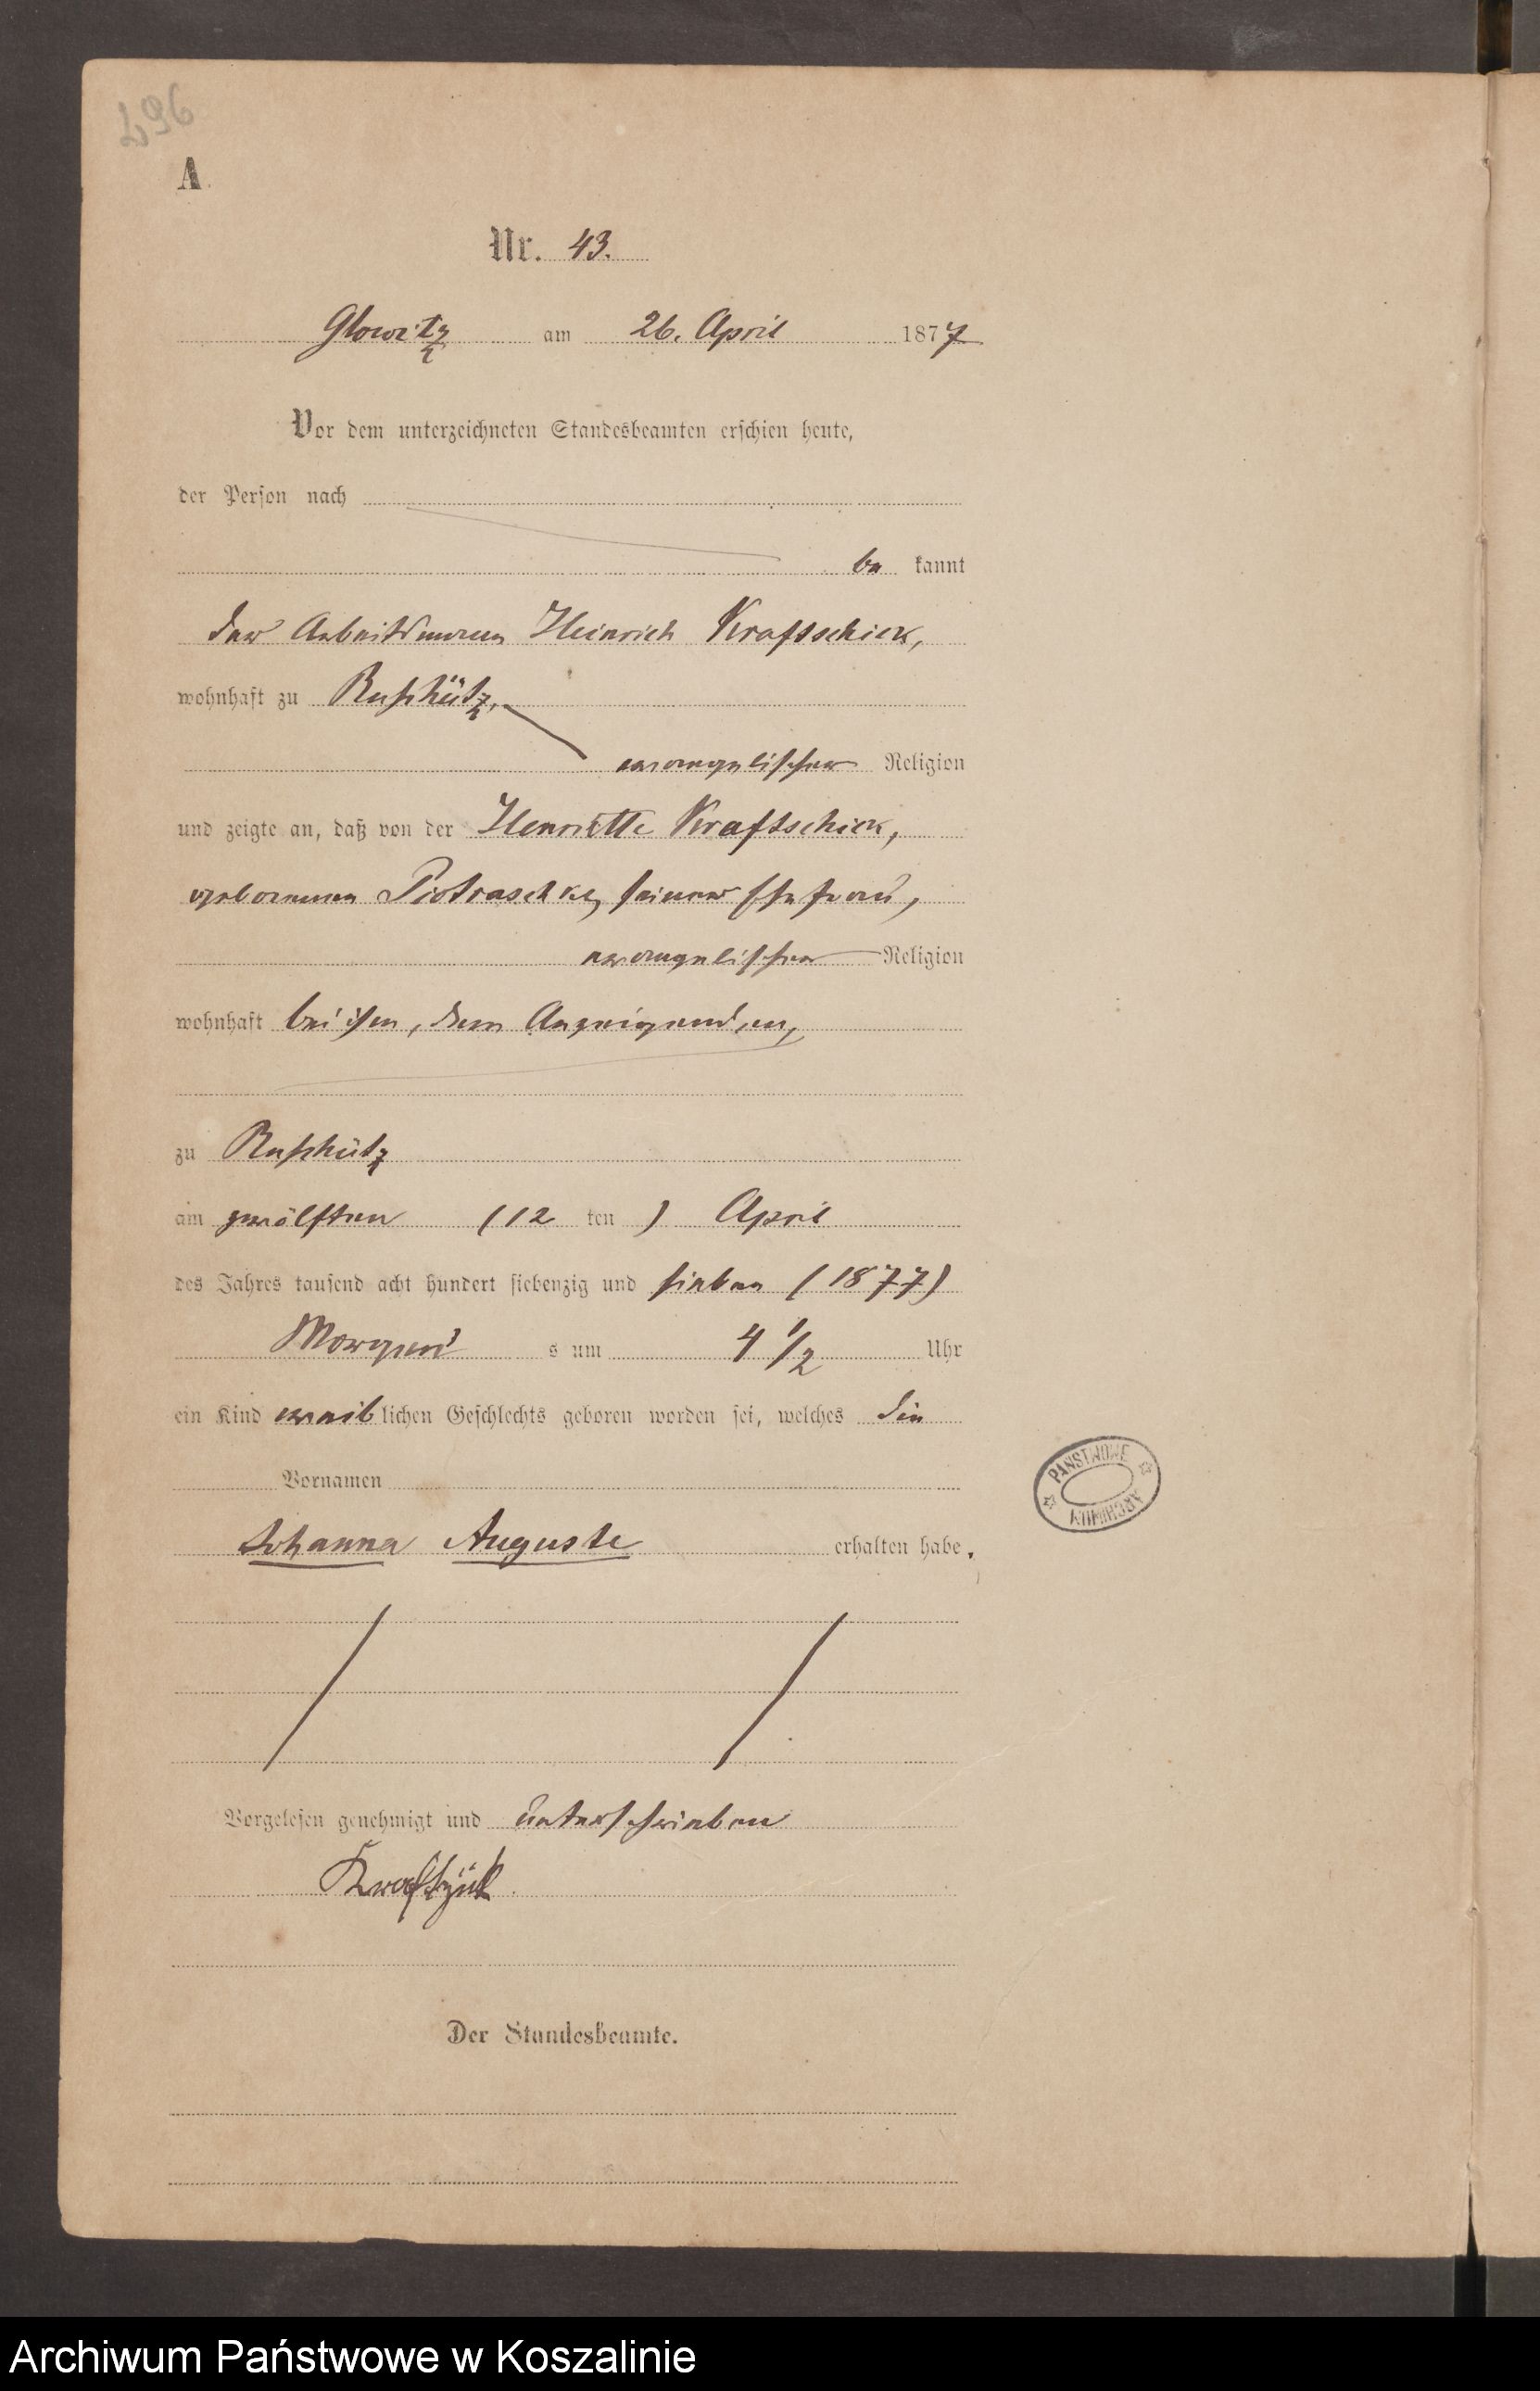 496
A.
Nr. 43.
Glowitz am 26. April 1877
Vor dem unterzeichneten Standesbeamten erschien heute,
der Person nach
be kannt
der Arbeitsmann Heinrich Kraftschick,
wohnhaft zu Ruschütz,
evangelischer Religion
und zeigte an, daß von der Henriette Kraftschick,
geborenen Piotraschke, seiner Ehefrau,
evangelischer Religion
wohnhaft bei ihm, dem Anzeigenden,
zu Ruschütz
am zwölften (12 ten) April
des Jahres tausend acht hundert siebenzig und sieben (1877)
Morgens um 4 1/2 Uhr
ein Kind weiblichen Geschlechts geboren worden sei, welches die
Vornamen
Johanna Auguste erhalten habe.
Vorgelesen genehmigt und unterschrieben
Der Standesbeamte.
PAŃSTWOWE ARCHIWUM
Archiwum Państwowe w Koszalinie